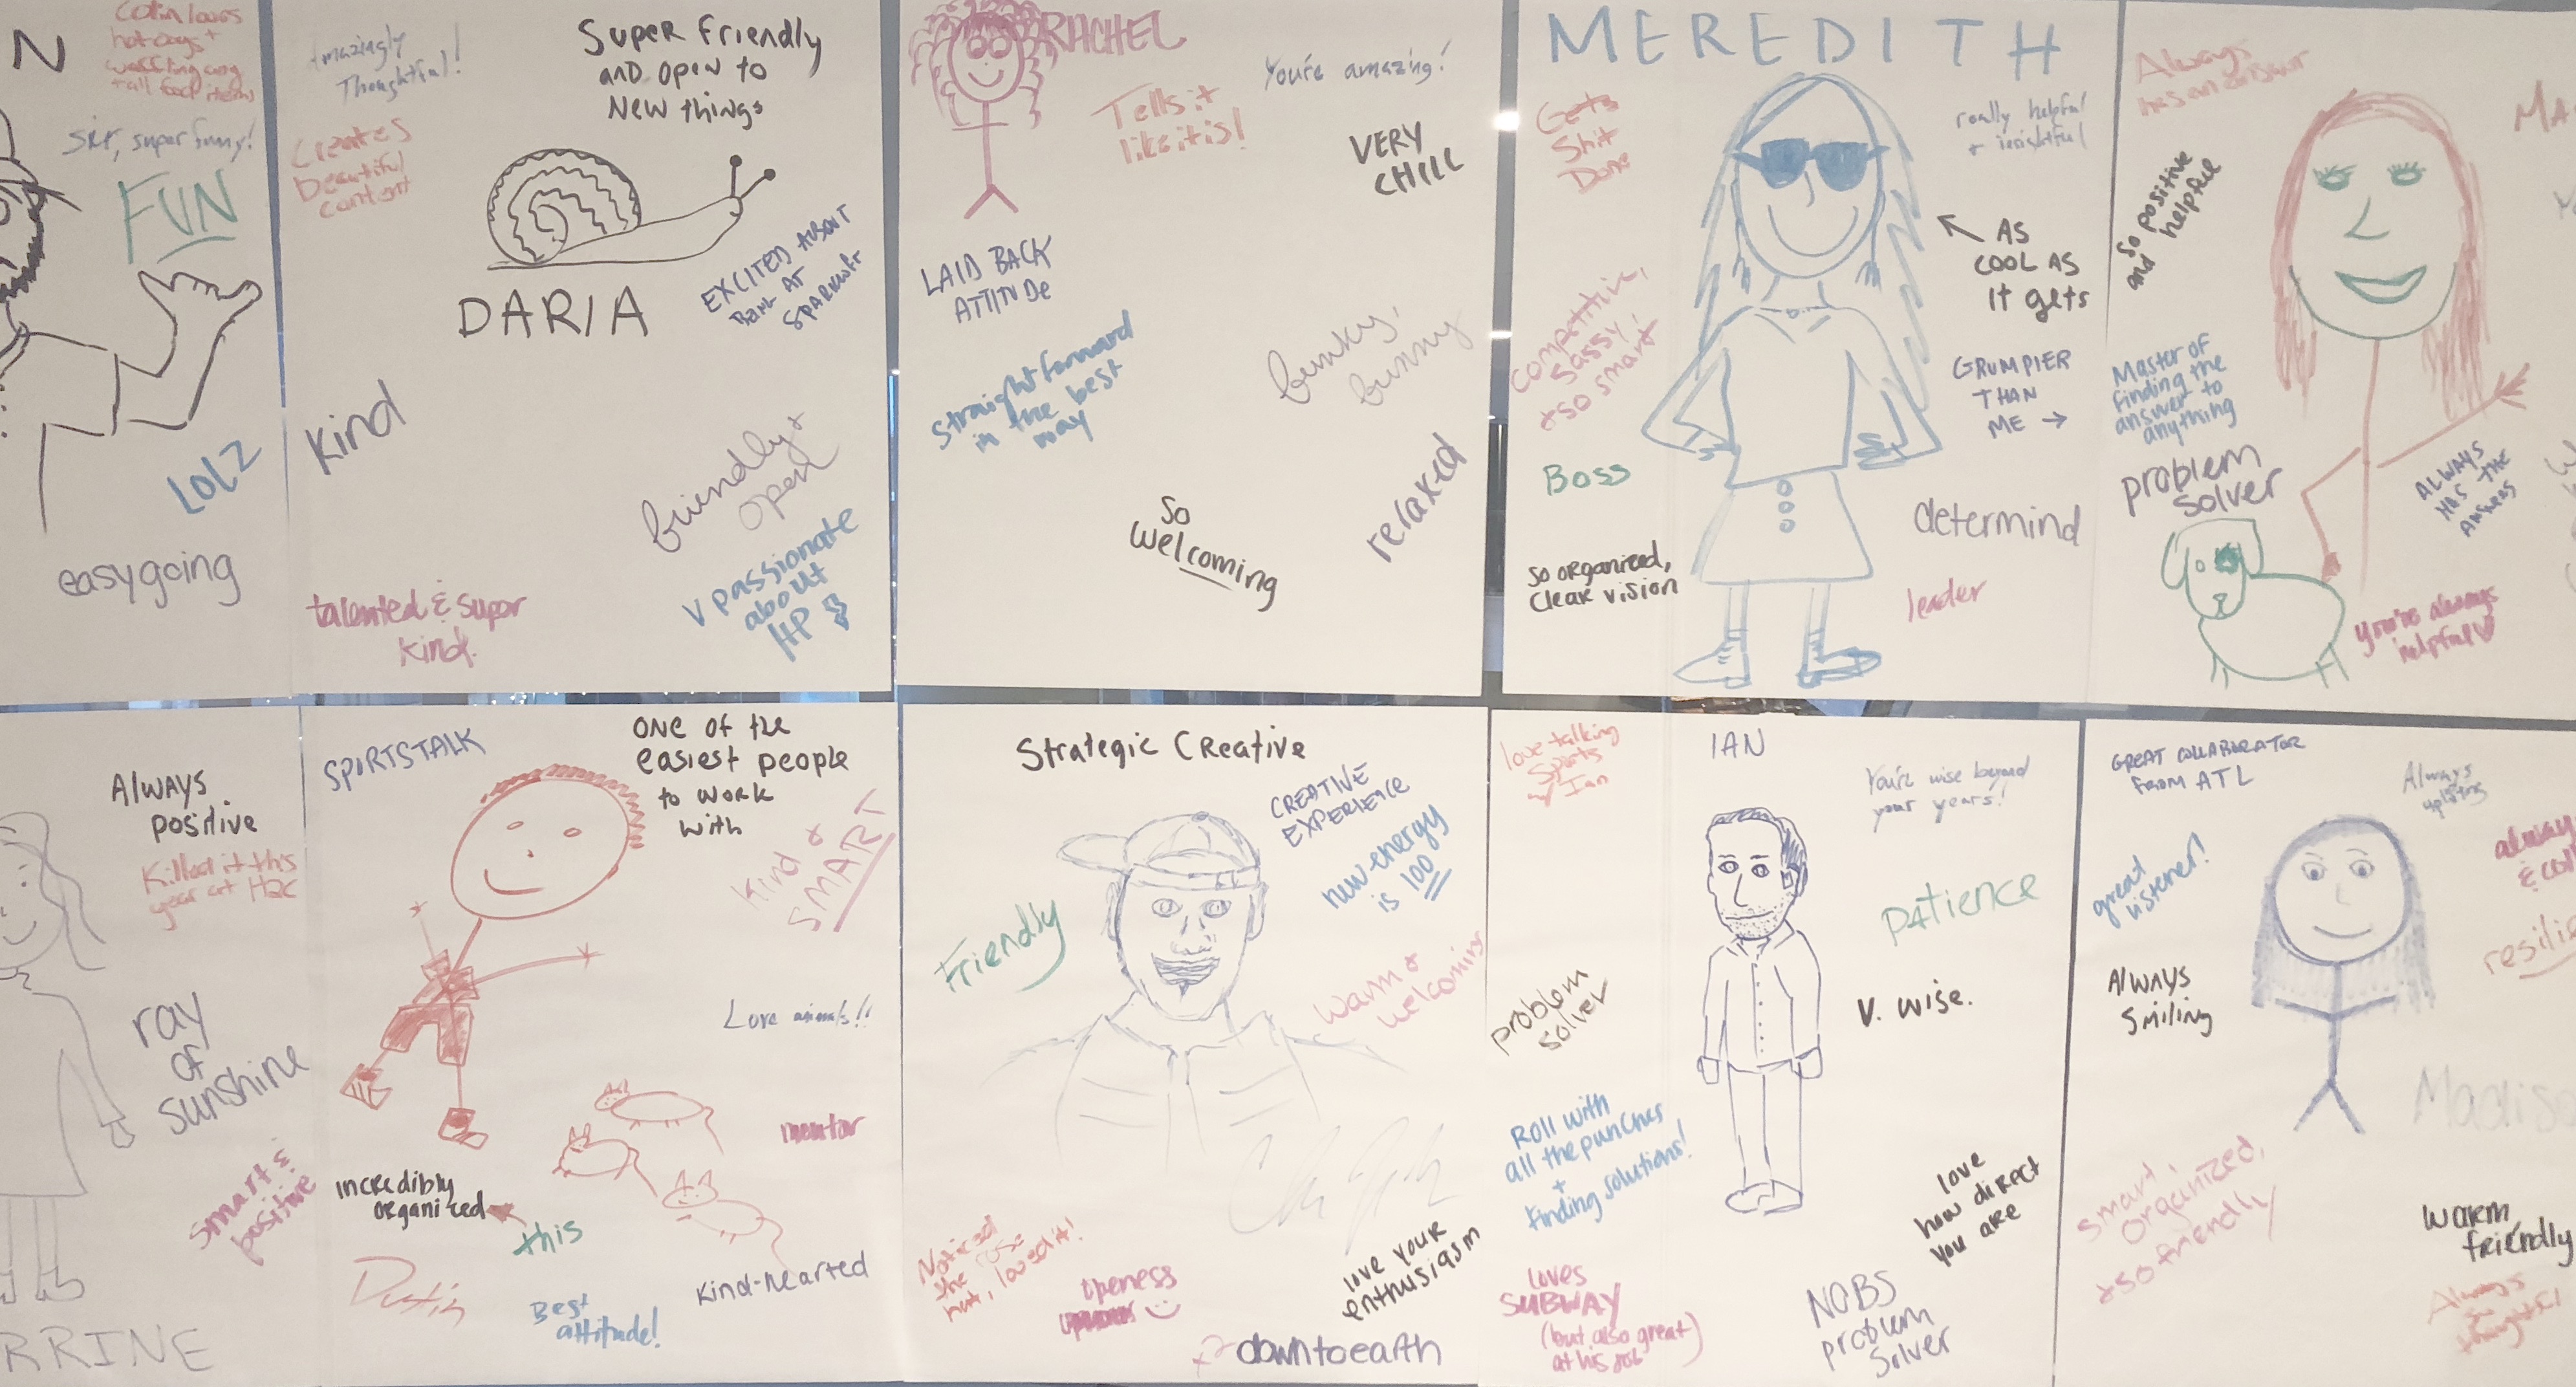 N
Colin loves
hot dogs +
watching any
tall food items
Sir, super funny!
FUN
LOLZ
easygoing
Amazingly
Thoughtful!
Super friendly
and open to
New things
Creates
beautiful
content
DARIA
EXCITED ABOUT
AT
Kind
friendly +
open
V passionate
about
HP
talented & super
kind.
RACHEL
Tells it
like it is!
You're amazing!
VERY
CHILL
LAID BACK
ATTITUDE
Straight forward
in the best
way
funky,
funny
So
Welcoming
relaxed
MEREDITH
Gets
Shit
Done
really helpful
+ insightful
AS
COOL AS
IT gets
competitive,
sassy,
+ so smart
GRUMPIER
THAN
ME →
Boss
determind
so organized,
clear vision
leader
Always
has an answer
MA
so positive
and helpful
Master of
finding the
answer to
anything
problem
solver
ALWAYS
HAS THE
ANSWERS
you're always
helpful
Always
positive
Killed it this
year at H2C
ray
of
sunshine
smart &
positive
RRINE
SPORTSTALK
ONE of the
easiest people
to work
with
Kind &
SMART
Love animals!!
mentor
incredibly
organized
this
Dustin
Best
attitude!
Kind-hearted
Strategic Creative
CREATIVE
EXPERIENCE
new energy
is 100
Friendly
Warm &
welcoming
Noticed
the rose
hat, loved it!
openess
love your
enthusiasm
down to earth
love talking
Sports
w/ Ian
IAN
You're wise beyond
your years!
patience
problem
solver
V. wise.
Roll with
all the punches
+
finding solutions!
love
how direct
you are
loves
SUBWAY
(but also great)
at his job
NOBS
problem
Solver
GREAT COLLABORATOR
FROM ATL
Always
uplifting
great
listener!
always
resilie
Always
Smiling
Madiso
smart,
organized,
+ so friendly
warm
friendly
Always
so
thoughtful